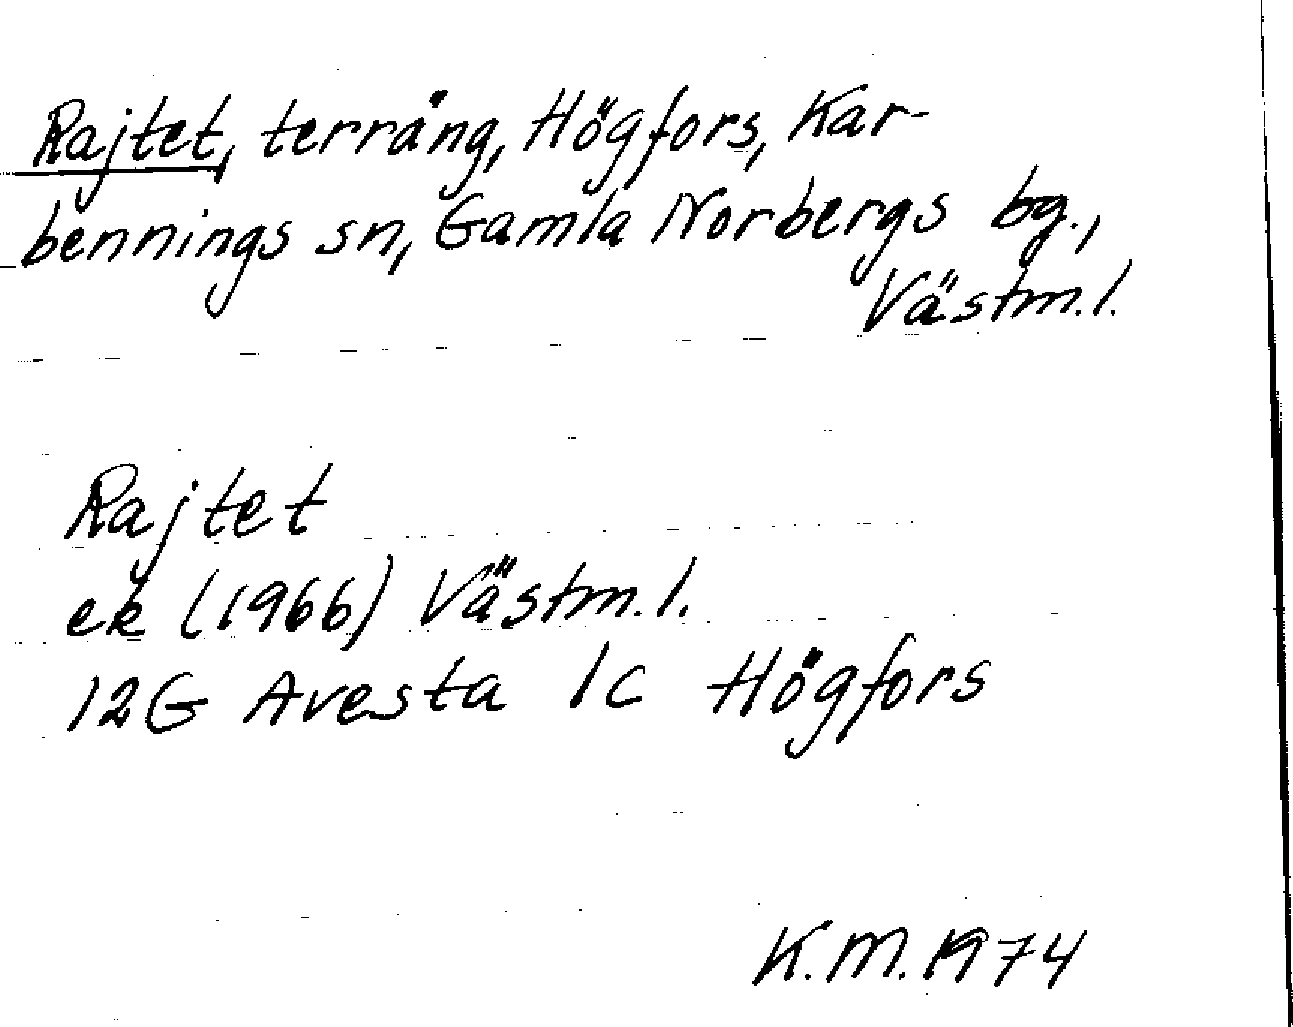 Rajtet, terräng, Högfors, Kar-
bennings sn, Gamla Norbergs bg.,
Västm.l.
Rajtet
ek (1966) Västm.l.
12G Avesta 1c Högfors
K.M. 1974